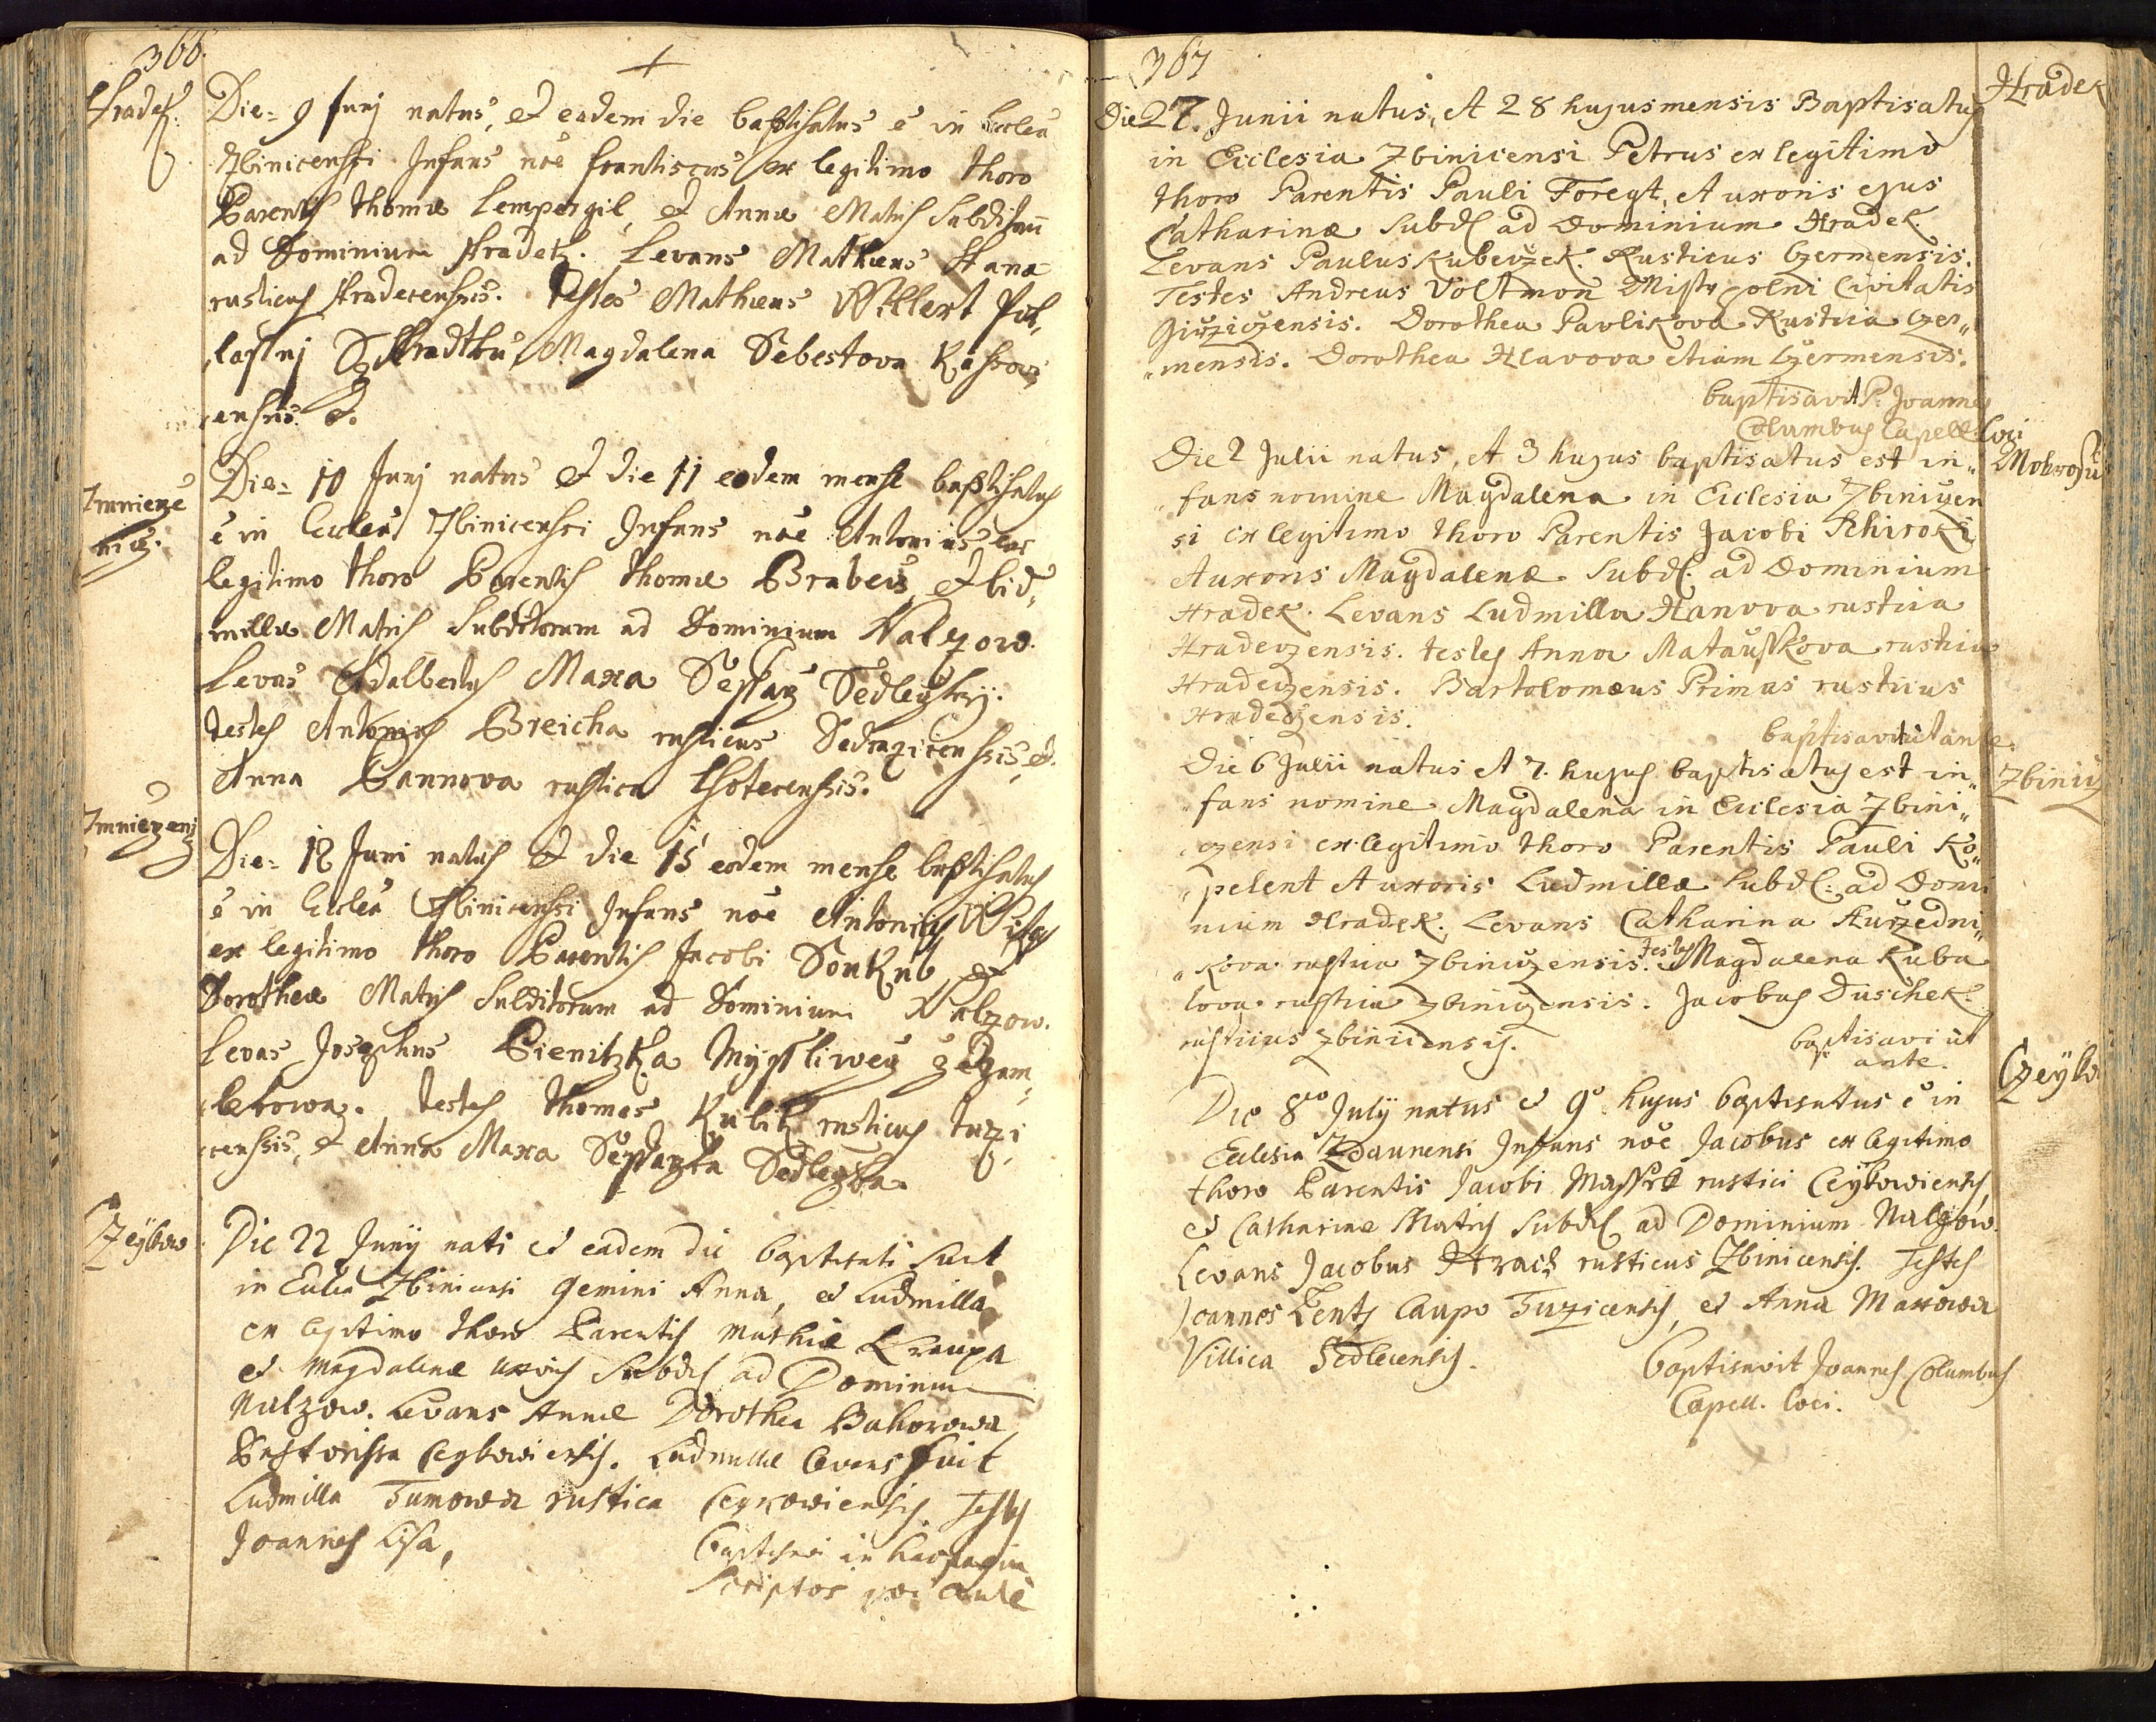 366.
Hradek.
Die = 9 Junj natus, et eadem die baptisatus ē in Ecclea
Zbinicensi Infans noē frantiscus ex legitimo thoro
Parentis thomæ Lempergil, et Annæ Matris Subditaū
ad Dominium Hradek. Levans Mathæus Hana
rusticus Hradecensis. Testes Mathæus Willert
Hradku, Magdalena Sebestova
censis. &.
Die = 10 Junj natus et die 11 eodem mense baptisatus
ē in Ecclea Zbinicensi Infans noē Antonius ex
legitimo thoro Parentis thomæ Brabec, et Lid,
millæ Matris Subditorum ad Dominium Nalzow.
Levās Adalbertus Maxa Sedlezky.
testes Antonius Breicha rusticus
Anna Pannova rustica
Die = 12 Juni natus et die 15 eodem mense baptisatus
ē in Ecclea Zbinicensi Infans noē Antonius Vitus
ex legitimo thoro Parentis Jacobi Soukub, et
Dorotheæ Matris Subditorum ad Dominium Nalzow.
Levās Josephus Pienitzka
testes Thomas Kubik rusticus tuzi
censis, et Anna Maxa Sedlezka.
Czeÿkow
Die 22 Junÿ nati et eadem die baptisati sunt
in Ecclea Zbinicensi Gemini Anna, et Ludmilla
ex legitimo thoro Parentis Mathiæ Kraupa
et Magdalenæ uxoris Subdl ad Dominium
Nalzow. Levans Annæ Dorothea Bakorowa
Ceykowiensis. Ludmillæ levans fuit
Ludmilla Tumowa rustica Ceykowiensis. Testes
Joannes Lisa,
Baptisavi in hac pagina
scriptos ante
367
Hradek
Die 27. Junii natus, et 28 hujus mensis Baptisatus
in Ecclesia Zbinicensi Petrus ex legitimo
thoro Parentis Pauli Foregt, et uxoris ejus
Catharinæ Subdl ad Dominium Hradek.
Levans Paulus Kubeczek. Rusticus Czermensis.
Testes Andreas Voltmon Mistr polni Civitatis
Dorothea Pavlikova Rustica Czer„
„mensis. Dorothea Hlavova etiam Czermensis.
baptisavit P. Joannes
Columbus Capell: Loci
Die 2 Julii natus, et 3 hujus baptisatus est in„
„fans nomine Magdalena in Ecclesia Zbiniczen
si ex legitimo thoro Parentis Jacobi Schiroki
et uxoris Magdalenæ Subdl. ad Dominium
Hradek. Levans Ludmilla Hanova rustica
Hradeczensis. testes Anna Matausskova rustica
Hradeczensis. Bartolomæus Primas rusticus
Hradeczensis.
baptisavi ut ante.
Zbinicz
Die 6 Julii natus et 7. hujus baptisatus est in„
„fans nomine Magdalena in Ecclesia Zbini„
czensi ex legitimo thoro Parentis Pauli Ko„
„pelent et uxoris Ludmillæ Subdl: ad Domi
nium Hradek. Levans Catharina Aurzedni„
„kova rustica Zbiniczensis. testes Magdalena Kuba
lova rustica Zbiniczensis. Jacobus Duschek.
rusticus Zbinicensis.
baptisavi ut
ante.
Czeÿkow
Die 8vo Julÿ natus et 9o hujus baptisatus ē in
Ecclesia Zdaunensi Infans noē Jacobus ex legitimo
thoro Parentis Jacobi rustici Ceÿkowiensis,
et Catharinæ Matris Subdl ad Dominium Nalzow.
Levans Jacobus Hrach rusticus Zbinicensis. Testes
Joannes Lentz Caupo Tuzicensis, et Anna Maxowa
Villica Sedlecensis.
Baptisavit Joannes Columbus
Capell. Loci.